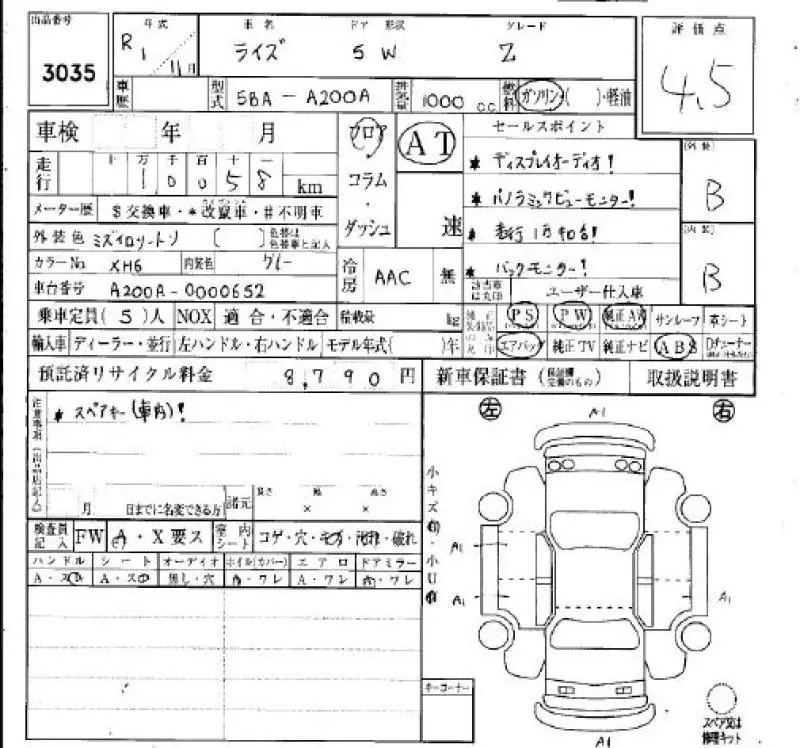 出品番号
3035
年式
R1 11月
車名
ライズ
ドア 形状
5W
グレード
Z
評価点
4.5
車歴
型式
5BA-A200A
排気量
1000 cc
燃料
ガソリン( )・軽油
車検 年 月
フロア
コラム
・
ダッシュ
AT
速
セールスポイント
* ディスプレイオーディオ!
* パノラミックビューモニター!
* 走行1万キロ台!
* バックモニター!
外装
B
内装
B
走行
十 万 千 百 十 一
1 0 0 5 8
km
メーター歴
$交換車・*改竄車・#不明車
外装色
( )
色替は色替車と記入
カラーNo
XH6
内装色
グレー
車台番号
A200A-0000652
冷房
AAC
無
該当車は丸印
ユーザー仕入車
乗車定員(5)人
NOX
適合・不適合
積載量
kg
PS
PW
純正AW
サンルーフ
革シート
輸入車
ディーラー・並行
左ハンドル・右ハンドル
モデル年式( )年
エアバッグ
純正TV
純正ナビ
ABS
預託済リサイクル料金
8,790円
新車保証書
取扱説明書
注意事項(出品店記入)
* スペアキー(車内)!
月 日までに名変できる方
諸元
長さ 幅 高さ
× ×
左
右
A1
小キズ有・小U有
A1
A1
A1
検査員記入
FW
A・X要ス
室内シート
コゲ・穴・
・破れ
ハンドル
シート
オーディオ
ホイル(カバー)
エアロ
ドアミラー
A・ス
A・ス
無し・穴
・ワレ
A・ワレ
・ワレ
キーコーナー
A1
スペア又は
修理キット